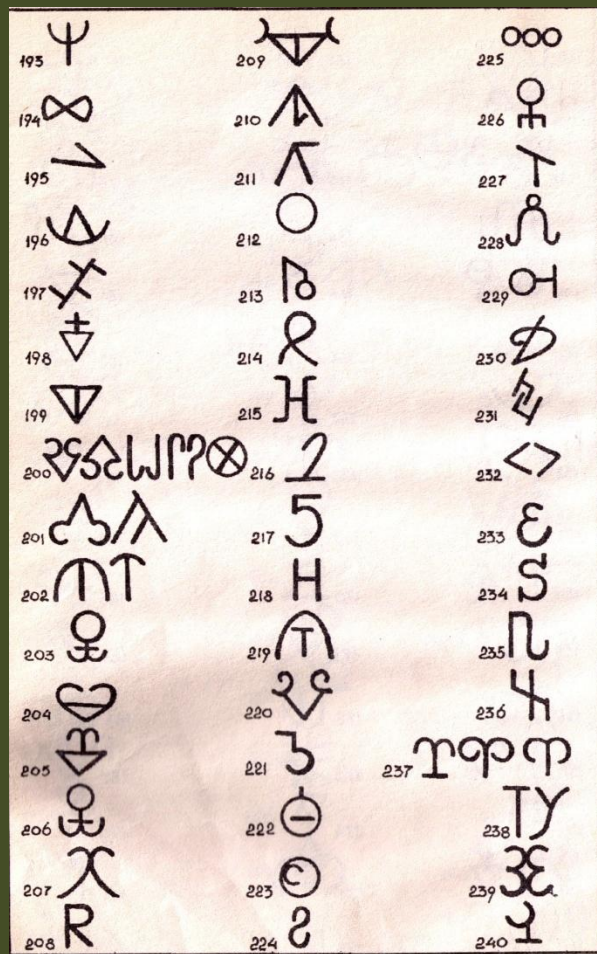 193
194
195
196
197
198
199
200
201
202
203
204
205
206
207
208 R
209
210
211
212
213
214
215
216 2
217 5
218 H
219
220
221
222
223
224
225
226
227
228
229
230
231
232
233
234
235
236
237
238 TY
239
240